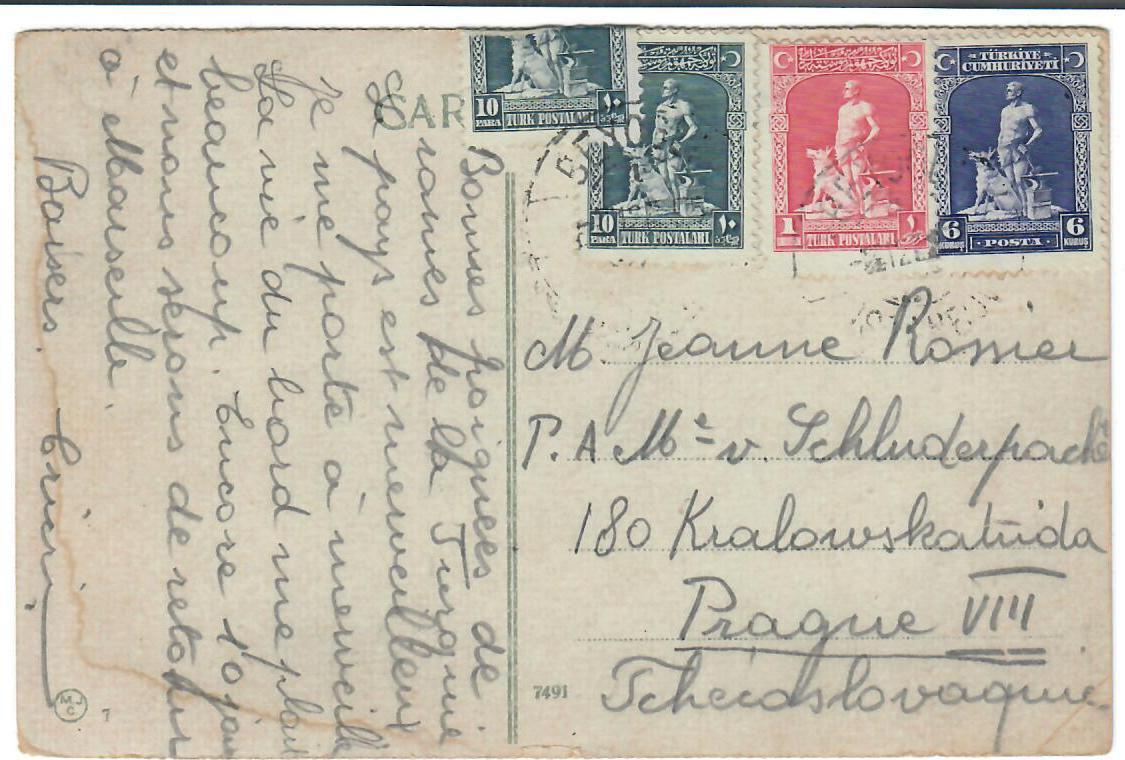 CAR
10
PARA
TÜRK POSTALARI
١٠
10
PARA
TÜRK POSTALARI
١٠
1
TÜRK POSTALARI
١
TÜRKİYE
CUMHURİYETİ
6
KURUŞ
POSTA
6
KURUŞ
BEYOĞ
Bonnes poignées de
rames de la Turquie
Le pays est merveilleux
Je me porte à merveille
La vie du bord me plait
beaucoup. Encore 10 jours
et nous serons de retour
à Marseille.
Baisers
M. Jeanne Rosier
P. A Mr v. Schluderpache
180 Kralowskatrida
Prague VIII
Tchécoslovaquie
7491
M.J.
C
7